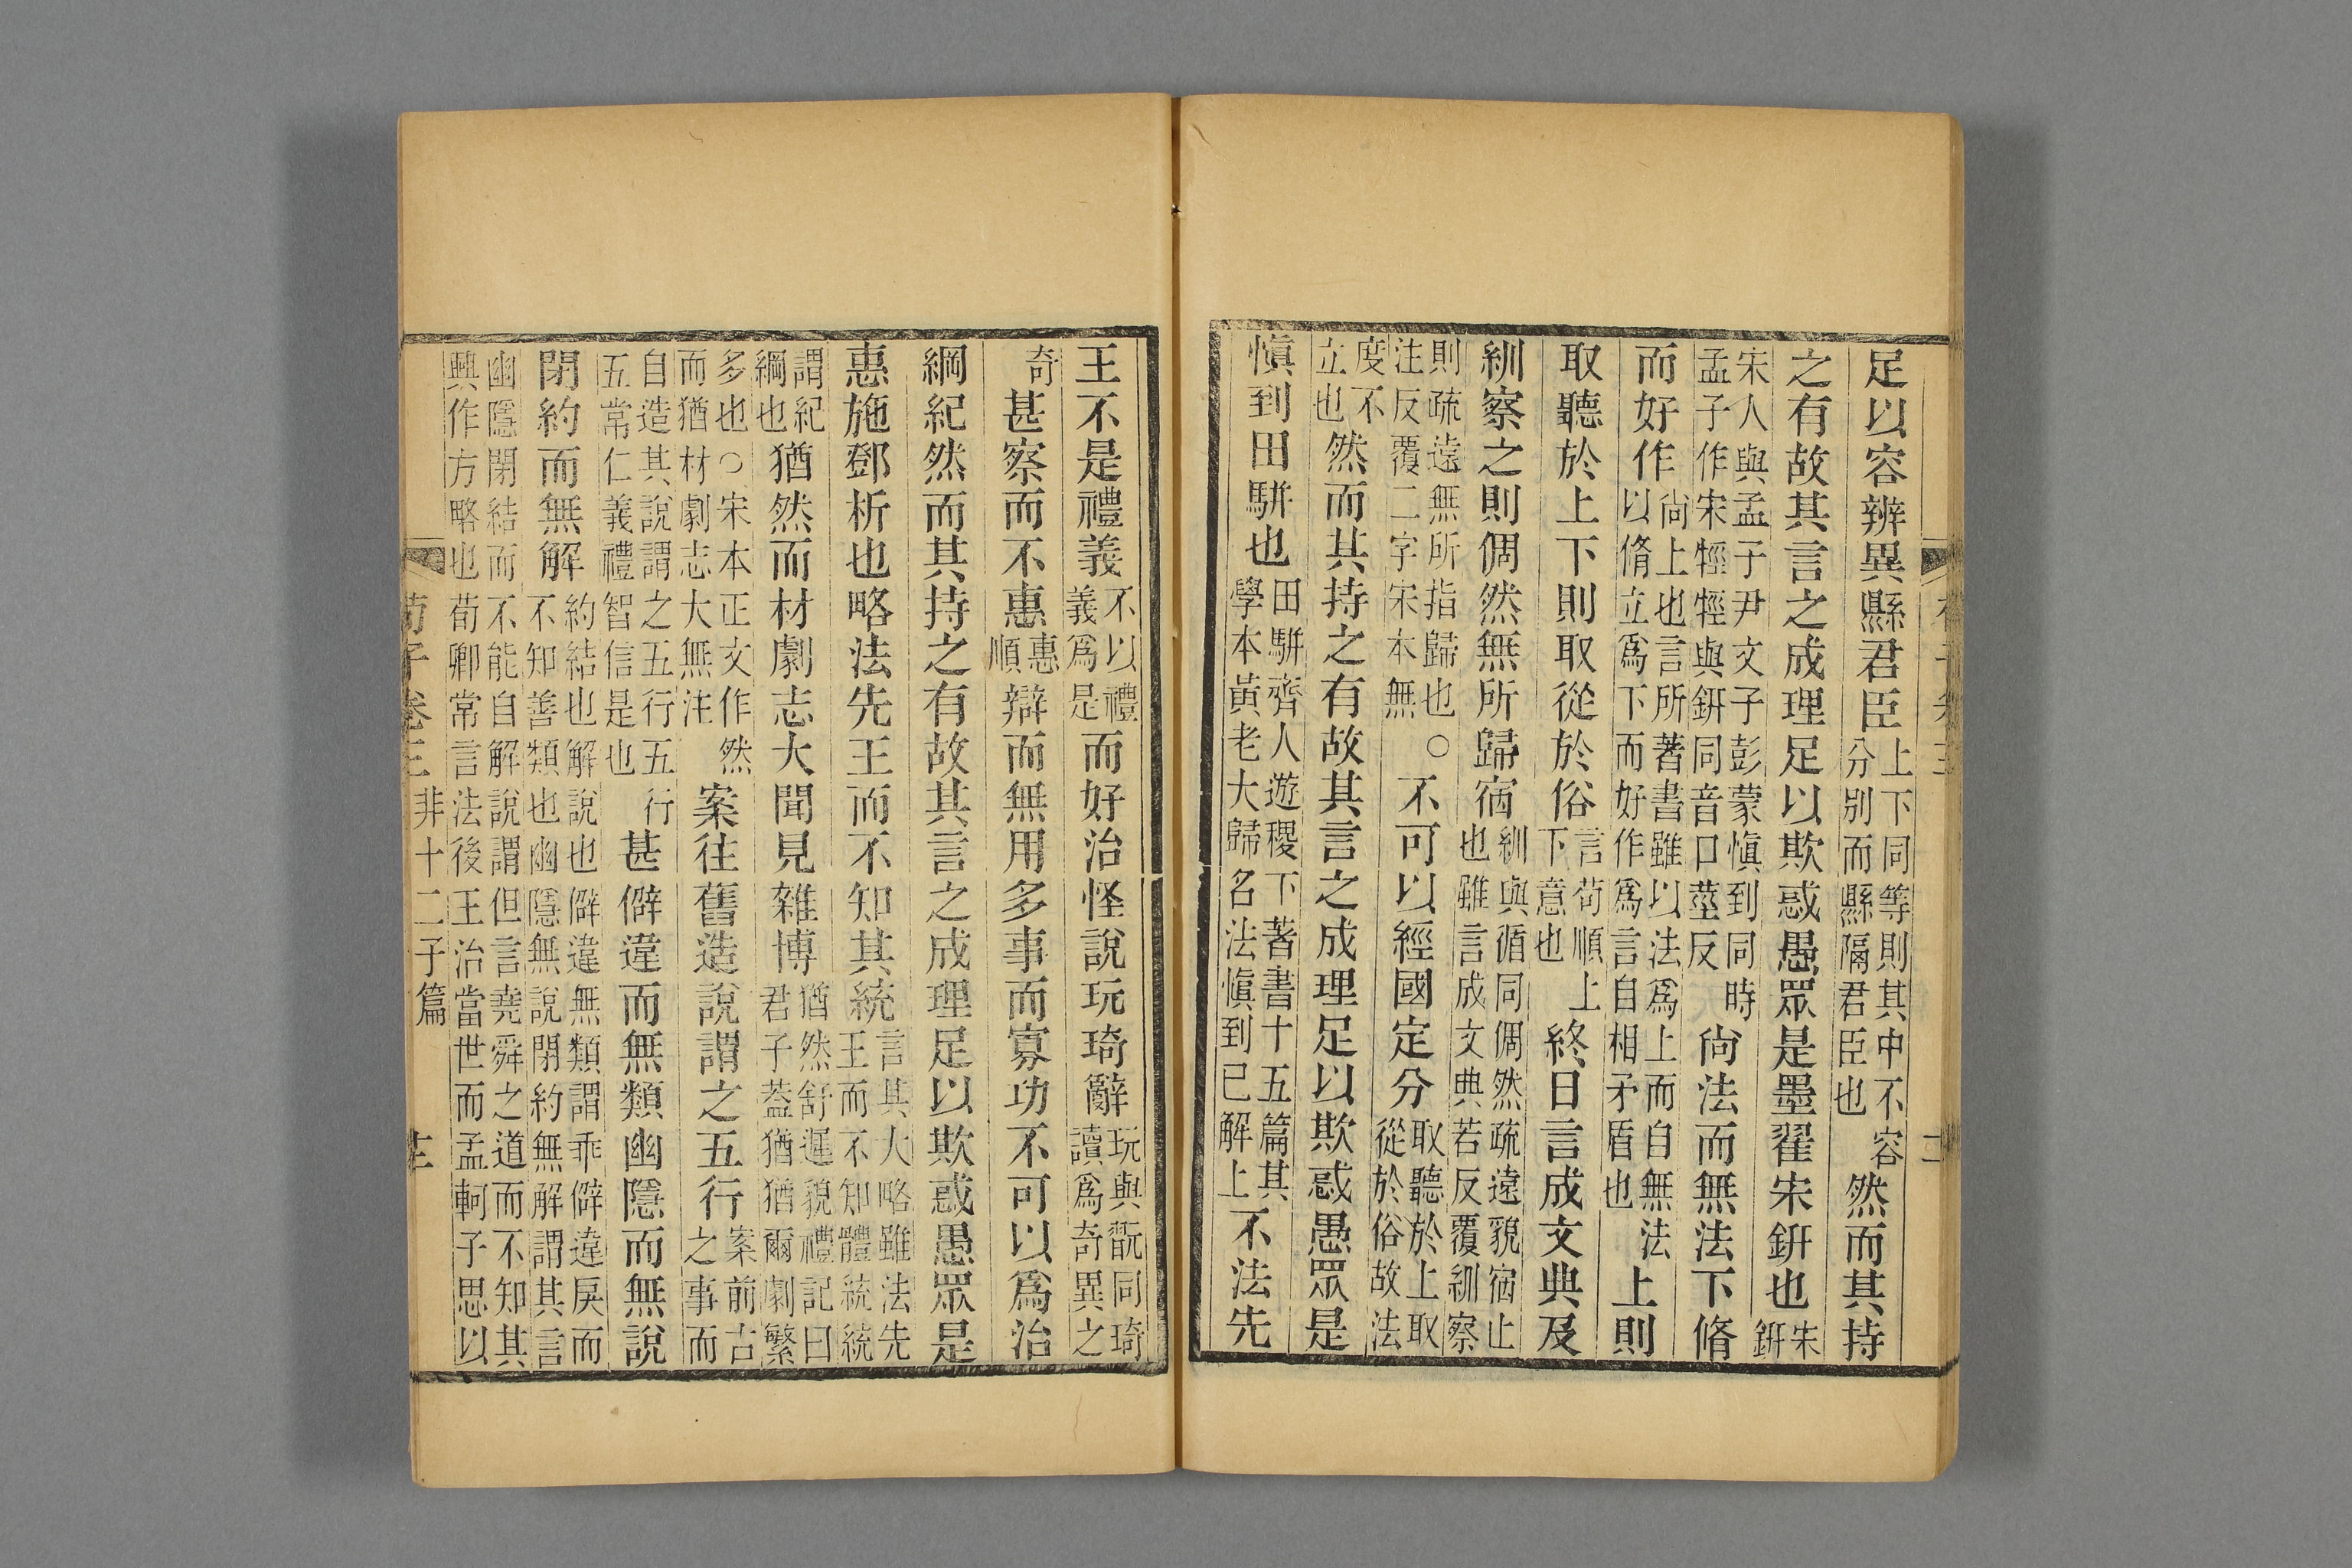 足以容辨異縣君臣上下同等則其中不容分別而縣隔君臣也然而其持
之有故其言之成理足以欺惑愚眾是墨翟宋鈃也宋鈃
宋人與孟子尹文子彭蒙愼到同時孟子作宋牼牼與鈃同音口莖反尙法而無法下脩
而好作尙上也言所著書雖以法爲上而自無法以脩立爲下而好作爲言自相矛盾也上則
取聽於上下則取從於俗言苟順上下意也終日言成文典及
紃察之則倜然無所歸宿紃與循同倜然疏遠貌宿止也雖言成文典若反覆紃察
則疏遠無所指歸也○注反覆二字宋本無不可以經國定分取聽於上取從於俗故法
度不立也然而其持之有故其言之成理足以欺惑愚眾是
愼到田駢也田駢齊人遊稷下著書十五篇其學本黃老大歸名法愼到已解上不法先
王不是禮義不以禮義爲是而好治怪說玩琦辭玩與翫同琦讀爲奇異之
奇甚察而不惠惠順辯而無用多事而寡功不可以爲治
綱紀然而其持之有故其言之成理足以欺惑愚眾是
惠施鄧析也略法先王而不知其統言其大略雖法先王而不知體統統
謂紀綱也猶然而材劇志大聞見雜博猶然舒遲貌禮記曰君子蓋猶猶爾劇繁
多也○宋本正文作然而猶材劇志大無注案往舊造說謂之五行案前古之事而
自造其說謂之五行五行五常仁義禮智信是也甚僻違而無類幽隱而無說
閉約而無解約結也解說也僻違無類謂乖僻違戾而不知善類也幽隱無說閉約無解謂其言
幽隱閉結而不能自解說謂但言堯舜之道而不知其興作方略也荀卿常言法後王治當世而孟軻子思以
荀子卷三 非十二子篇